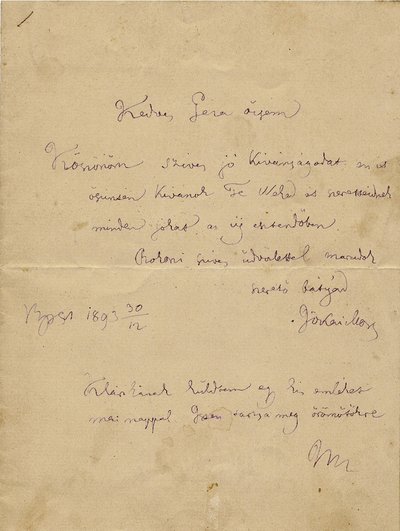 Kedves Geza öcsém
Köszönöm szives jó kivánságodat én is
őszintén kivánok Te Neked és szeretteidnek
minden jókat az új esztendőben
Rokoni szives üdvözlettel maradok
szerető bátyád
Jókai Mór
Bpest 1893 30/12
Klárikának küldtem egy kis emléket
mai nappal. Isten tartsa meg örömötökre